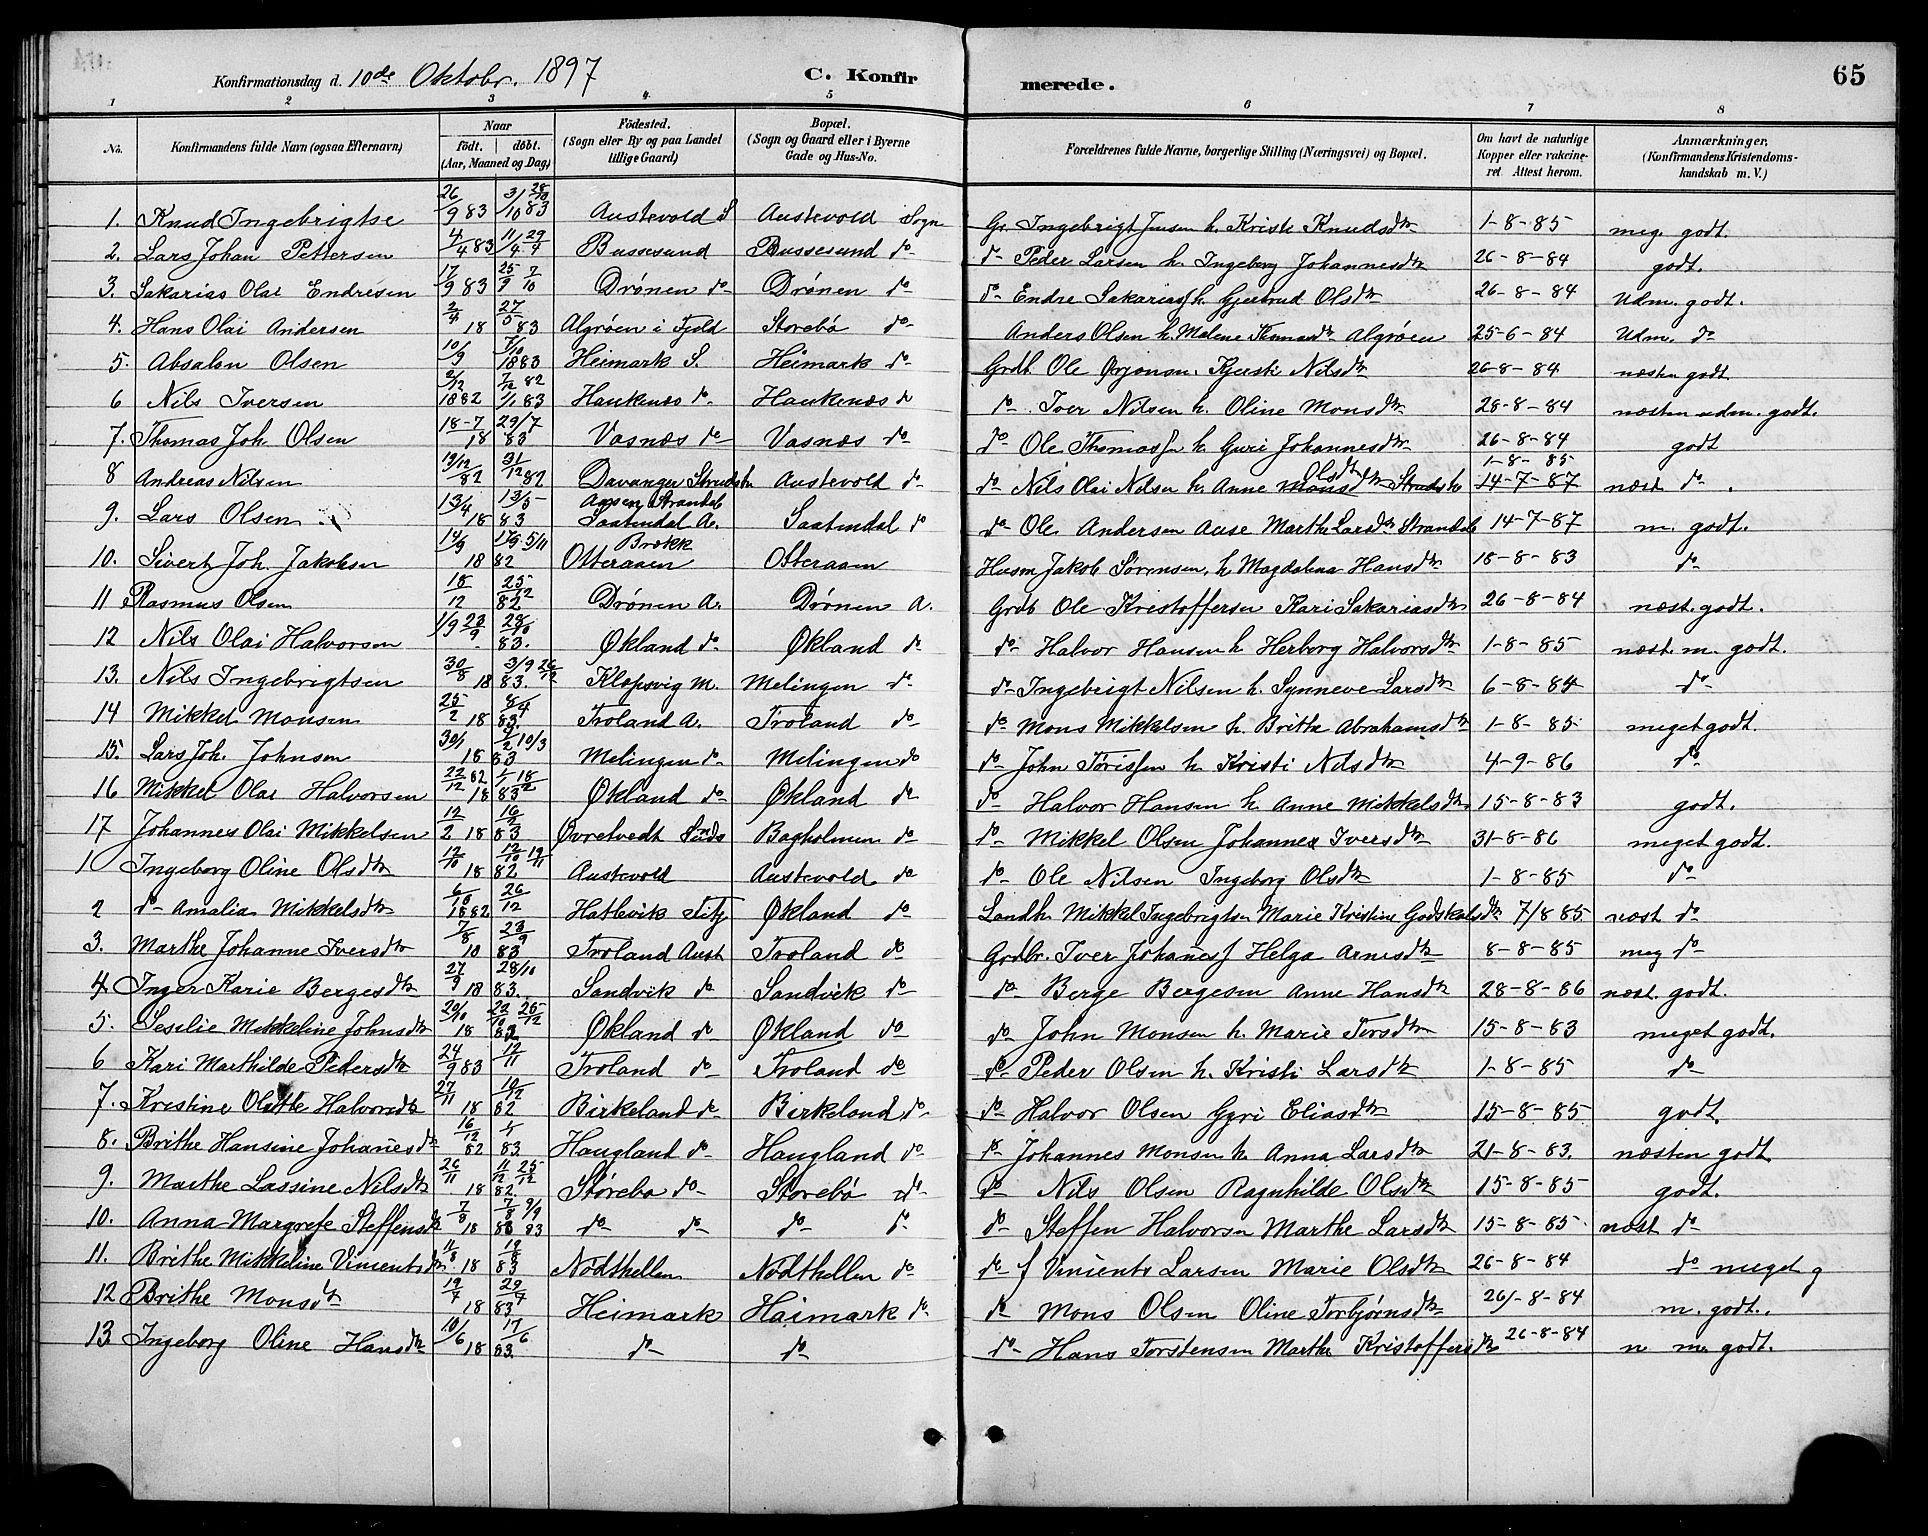 65
Konfirmationsdag d. 10de Oktobr. 1897 C. Konfirmerede.
1 2 3 4 5 6 7 8
No. Konfirmandens fulde Navn (ogsaa Efternavn) Naar født. døbt. (Aar, Maaned og Dag) Fødested. (Sogn eller By og paa Landet tillige Gaard) Bopæl. (Sogn og Gaard eller i Byerne Gade og Hus-No. Forældrenes fulde Navne, borgerlige Stilling (Næringsvei) og Bopæl. Om havt de naturlige Kopper eller vakcineret Attest herom. Anmærkninger, (Konfirmandens Kristendomskundskab m. V.)
1. Knud Ingebrigtse 26/9 83 3/10 28/10 83 Austevold S Austevold Sogn Gr. Ingebrigt Jensen h. Kristi Knudsdtr 1-8-85 meg. godt.
2. Lars Johan Pettersen 4/4 83 11/4 29/4 Bussesund Bussesund do Peder Larsen h. Ingeborg Johannesdtr 26-8-84 godt.
3. Sakarias Olai Endresen 17/9 83 25/9 7/10 Drønen do Drønen do do Endre Sakarias h. Gjertrud Olsdtr 26-8-84 Udm. godt.
4. Hans Olai Andersen 2/4 18 27/5 83 Algrøen i Fjeld Storebø do Anders Olsen h. Malene Algrøen 25-6-84 Udm. do
5. Absalon Olsen 10/9 7/10 1883 Heimark S. Heimark do Grdb. Ole Kjersti Nilsdtr 26-8-84 næsten godt
6 Nils Iversen 2/12 1882 7/12 82 83 Haukenæs do Haukenæs do do Iver Nilsen h. Oline Monsdtr 28-8-84 næsten udm. godt.
7. Thomas Joh. Olsen 18-7 18 29/7 83 Vasnæs do Vasnæs do do Ole Thomas h Guri Johannesdtr 26-8-84 godt
8 Andreas Nilsen 19/12 82 31/12 82 Davanger Austevold do do Nils Olai Nilsen h. Anne Olsdt 1-8-85 14-7-87 næst do
9. Lars Olsen 13/4 18 13/5 83 Saatendal A. Saatendal do do Ole Andersen Aase Marthe Larsdtr 14-7-87 m. godt.
10. Sivert Joh. Jakobsen 14/9 18 17/9 5/11 82 Brekk Otteraaen Otteraaen Husm Jakob Sørensen, h Magdalena Hansdtr 18-8-83 do
11 Rasmus Olsen 18/12 25/12 82 Drønen A. Drønen A. Grdb Ole Kristoffersen Kari Sakariasdtr 26-8-84 næst. godt.
12 Nils Olai Halvorsen 1/9 23/9 28/10 83. Økland do Økland do do Halvor Hansen h Herborg Halvorsdtr 1-8-85 næst. m. godt.
13. Nils Ingebrigtsen 30/8 18 3/9 26/12 83. Klepsvig M. Melingen do do Ingebrigt Nilsen h. Synneve Larsdtr 6-8-84 do
14 Mikkel Monsen 25/2 18 8/4 83 Troland A. Troland do do Mons Mikkelsen h. Britha Abrahamsdtr 1-8-85 meget godt.
15. Lars Joh. Johnsen 30/1 18 4/2 10/3 83 Melingen do Melingen do do John h Kristi Nilsdtr 4-9-86 do
16 Mikkel Olai Halvorsen 22/12 82 18 1/1 18/2 83 Økland do Økland do do Halvor Hansen h. Anne Mikkelsdtr 15-8-83 godt.
17 Johannes Olai Mikkelsen 12/2 18 16/2 83 Øvretvedt Bagholmen do do Mikkel Olsen Johanne Iversdtr 31-8-86 meget godt.
1 Ingeborg Oline Olsdtr 12/10 18 12/10 19/11 82 Austevold Austevold do do Ole Nilsen Ingeborg Olsdtr 1-8-85 do
2 do Amalia Mikkelsdtr 6/10 1882 26/12 Hatlevik Fitj Økland do Landh. Mikkel Ingebrigtsen Marie Kristine Godskalsdtr 7/8 85 næst do
3. Marthe Johanne Iversdtr 7/8 23/9 83 Troland Aust Troland do Grdbr. Iver Johanes Helga Arnesdtr 8-8-85 meg do
4. Inger Karie Bergesdtr 27/9 18 28/10 83. Sandvik do Sandvik do do Berge Bergesen Anne Hansdtr 28-8-86 næst. godt.
5. Sesilie Mikkeline Johnsdtr 20/10 18 22/10 26/12 82 Økland do Økland do do John Monsen h. Marie Torsdtr 15-8-83 meget godt.
6 Kari Marthilde Pedersdtr 24/9 83 12/11 Troland do Troland do do Peder Olsen h. Kristi Larsdtr 1-8-85 do
7. Kristine Halvorsdtr 27/11 18 10/12 82 Birkeland do Birkeland do do Halvor Olsen Gyri Eliasdtr 15-8-85 godt.
8. Brithe Hansine Johanesdtr 16/12 82 1/1 83 Haugland do Haugland do do Johannes Monsen h. Anna Larsdtr 21-8-83. næsten godt
9. Marthe Lassine Nilsdtr 26/11 18 11/12 25/12 82. Størebø do Storebø do do Nils Olsen Ragnhilde Olsdtr 15-8-85 godt.
10. Anna Margrete Steffensdtr 7/8 18 7/8 9/9 83 83 do do do do do Steffen Halvorsen Marthe Larsdtr 15-8-85 næst do
11. Brithe Mikkeline Vincentsdtr 11/8 18 19/8 83 Nodthellen Nodthellen do do f Vincents Larsen Marie Olsdtr 26-8-84 do meget g
12 Brithe Monsdtr 19/4 18 29/4 83 Heimark Haimark do do Mons Olsen Oline Torbjørnsdtr 26-8-84 m. godt.
13 Ingeborg Oline Hansdtr 10/6 18 17/6 83. do do do Hans Torstensen Marthe Kristoffersdtr 26-8-84 n m. godt.